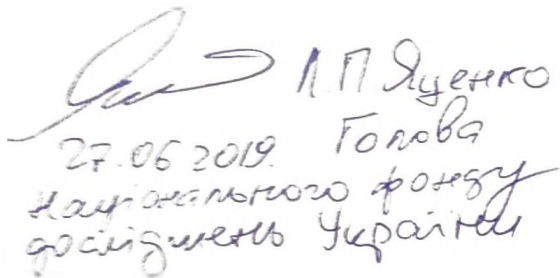 Л.П Яценко
27.06 2019. Голова
Національного фонду
досліджень України